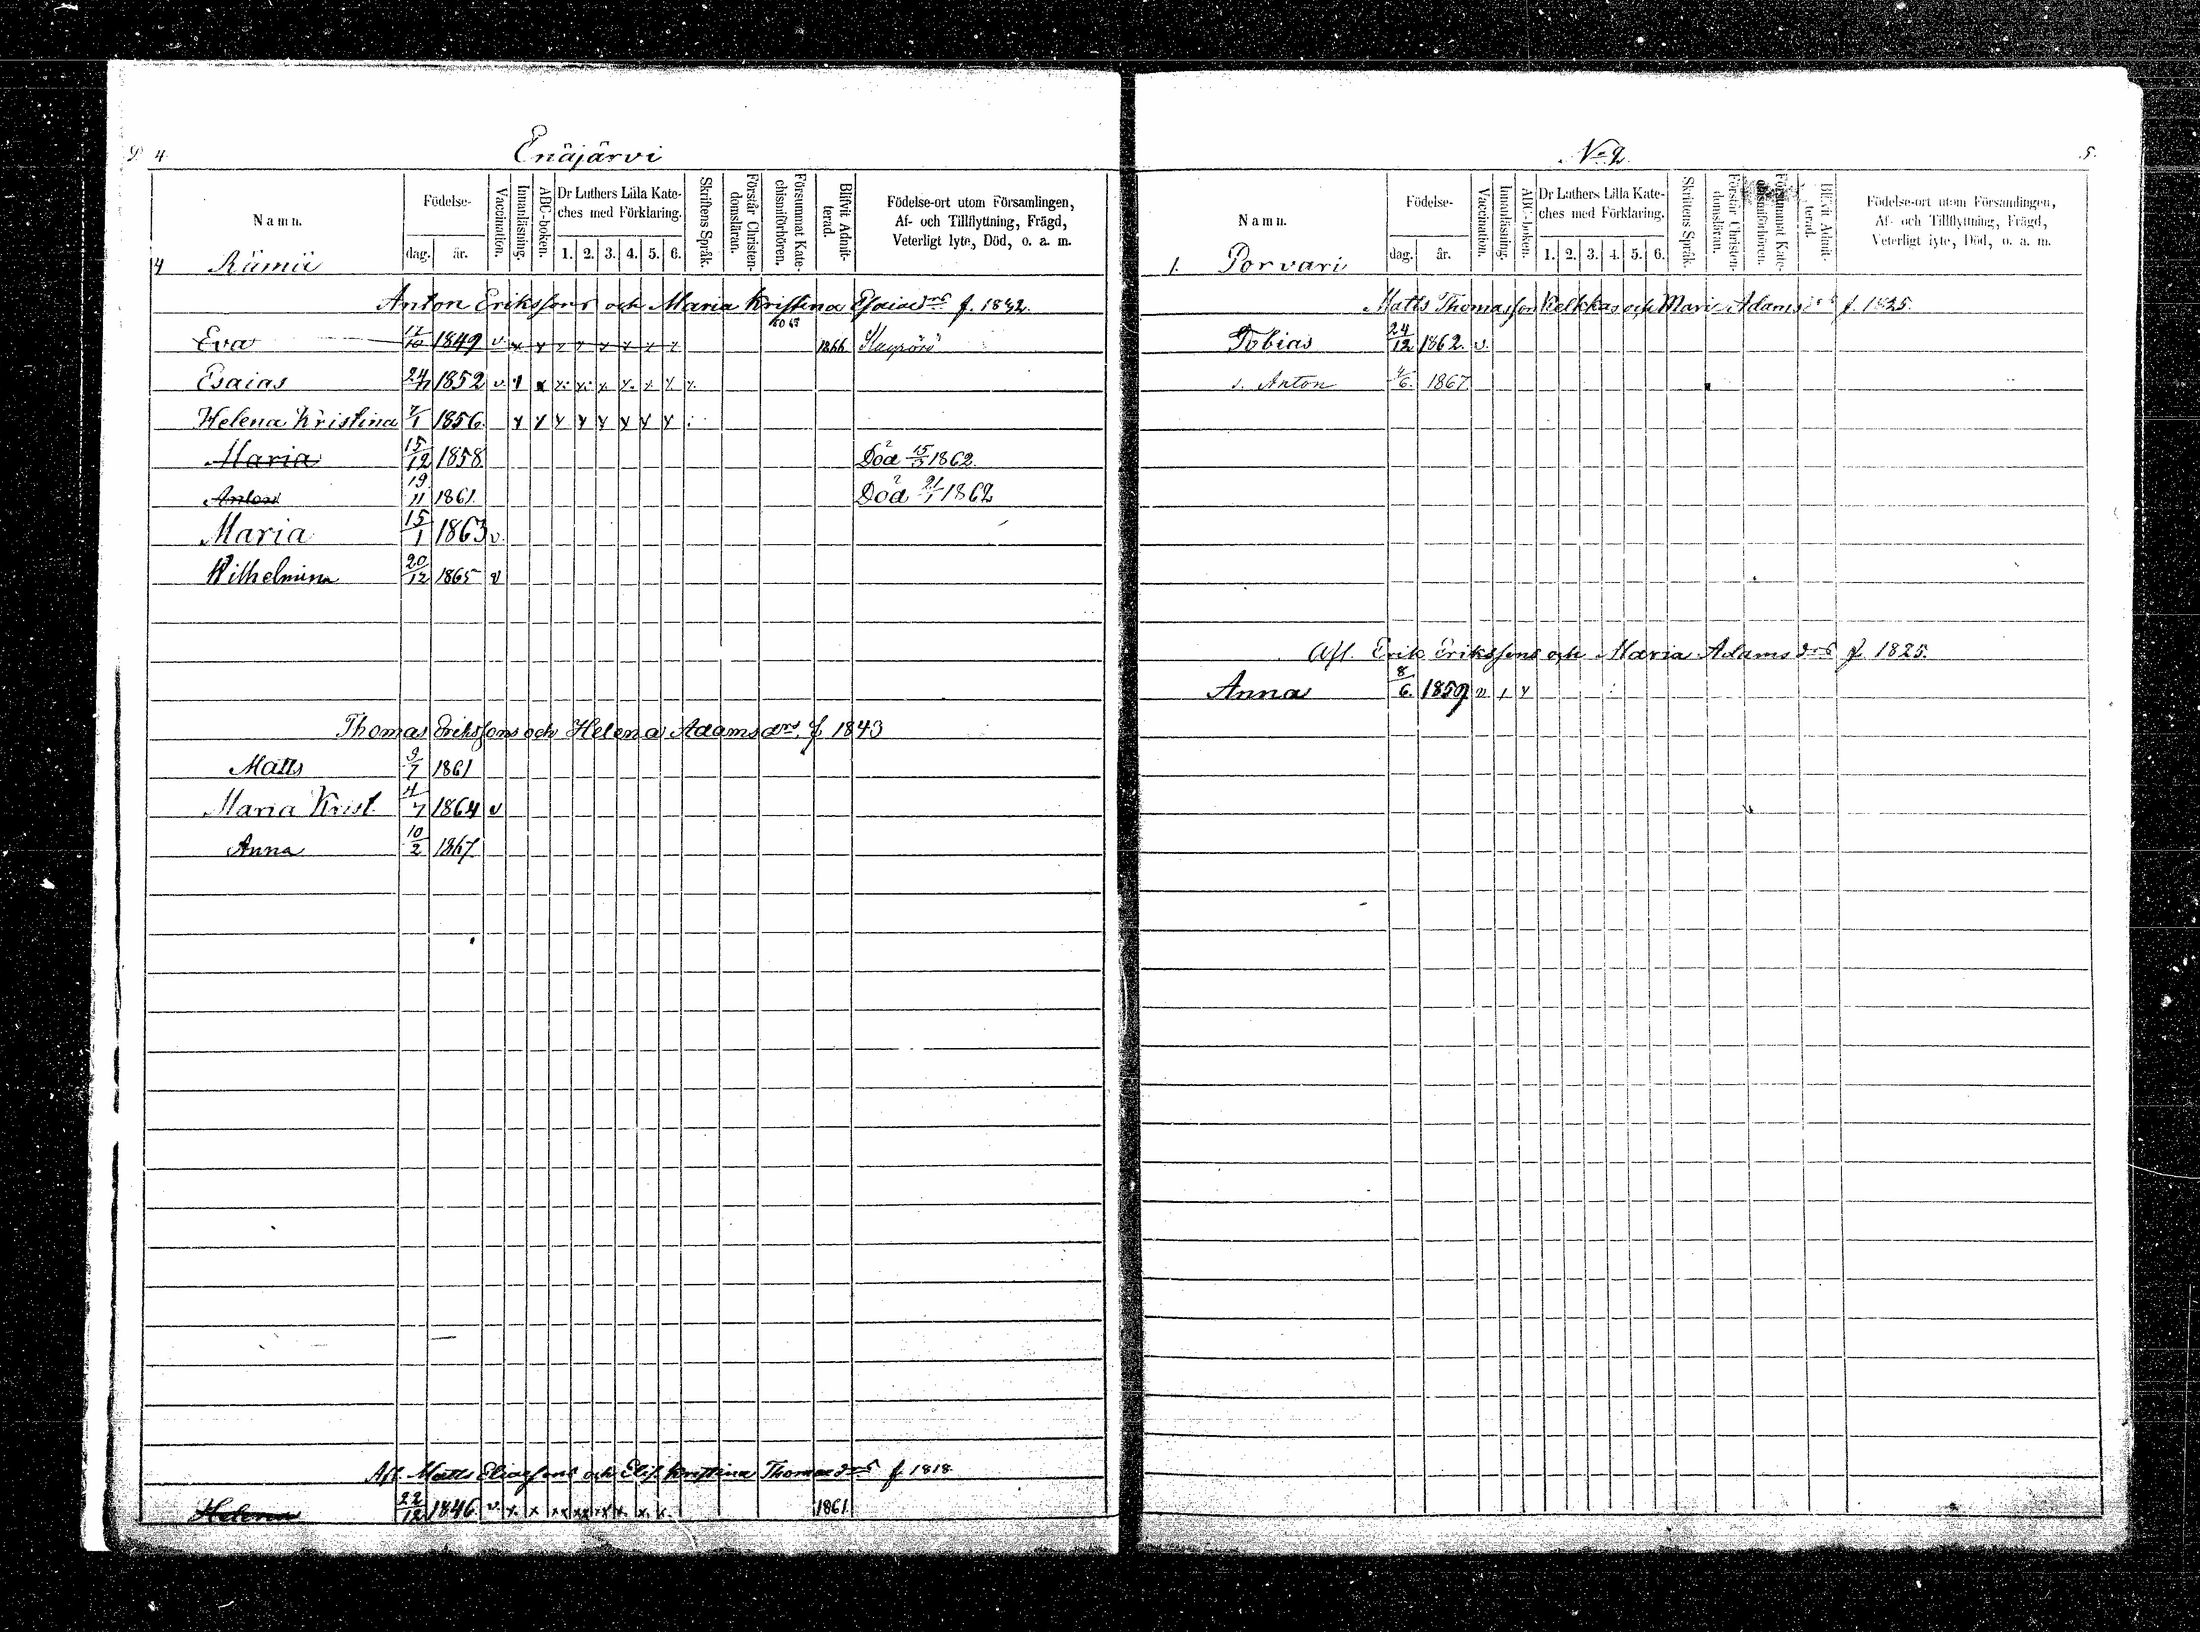 4.
Enäjärvi
Namn. Födelse- dag. år. Vaccination. Innanläsning. ABC-boken. Dr Luthers Lilla Kate-ches med Förklaring. 1. 2. 3. 4. 5. 6. Skriftens Språk. Förstår Christen-domsläran. Försummat Kate-chismiförhören. Blifvit Admit-terad. Födelse-ort utom Församlingen, Af- och Tillflyttning, Frägd, Veterligt lyte, Död, o. a. m.
4 Rämii
Anton Erikssons och Maria Kristina Esaiadrs f. 1832.
Eva 1849 v. x x x x x x x x 1866
Esaias 24 1852 v
Helena Kristina 1 1856. x x x x x x x x
Maria 15/12 1858. Död 15/3 1862.
Anton 19/11 1861. Död 21/1 1862
Maria 15/1 1863 v.
Wilhelmina 20/12 1865 v
Thomas Erikssons och Helena Adamsdrs. f 1843
Matts 9/7 1861
Maria Krist. 4/7 1864 v
Anna 10/2 1867.
Afl. Matts Eliassons och Elis. Kristina Thomasdrs f. 1818
Helena 22/12 1846. v. x. x xx xx xx x. x. x. 1861.
No 2.
5.
Namn. Födelse- dag. år. Vaccination. Innanläsning. ABC-boken. Dr Luthers Lilla Kate-ches med Förklaring. 1. 2. 3. 4. 5. 6. Skriftens Språk. Förstår Christen-domsläran. Försummat Kate-chismiförhören. Blifvit Admit-terad. Födelse-ort utom Församlingen, Af- och Tillflyttning, Frägd, Veterligt lyte, Död, o. a. m.
1. Porvari
Matts Thomasson Kelkkas och Maria Adamsdrs f. 1825.
Tobias 24/12 1862. v.
s. Anton 1867
Afl. Erik Erikssons och Maria Adamsdrs f. 1825.
Anna 8/6. 1859 v